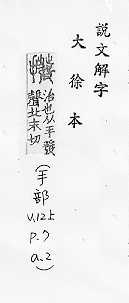 說文解字
大徐本
治也从手發
聲北末切
(手部
v.12上
p.7
a.2)